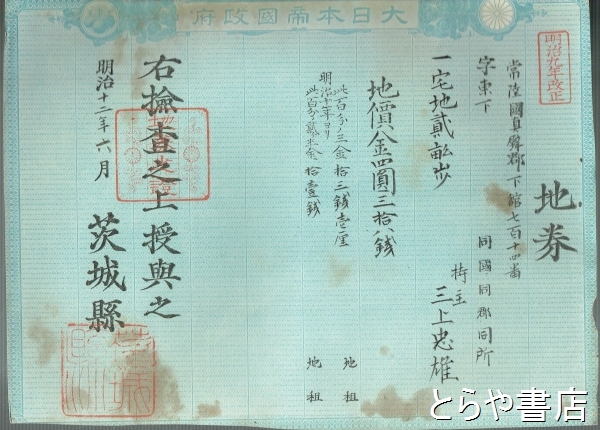 大日本帝國政府
明治九年改正
地券
常陸國真壁郡下館七百十四番
字東下
同國同郡同所
一宅地貳畝歩
持主 三上忠雄
地價金四圓三拾八錢
此百分ノ三金拾三錢壱厘 地租
明治十年ヨリ
此百分ノ貳半金拾壹錢 地租
右撿査之上授與之
明治十二年六月
茨城縣
とらや書店